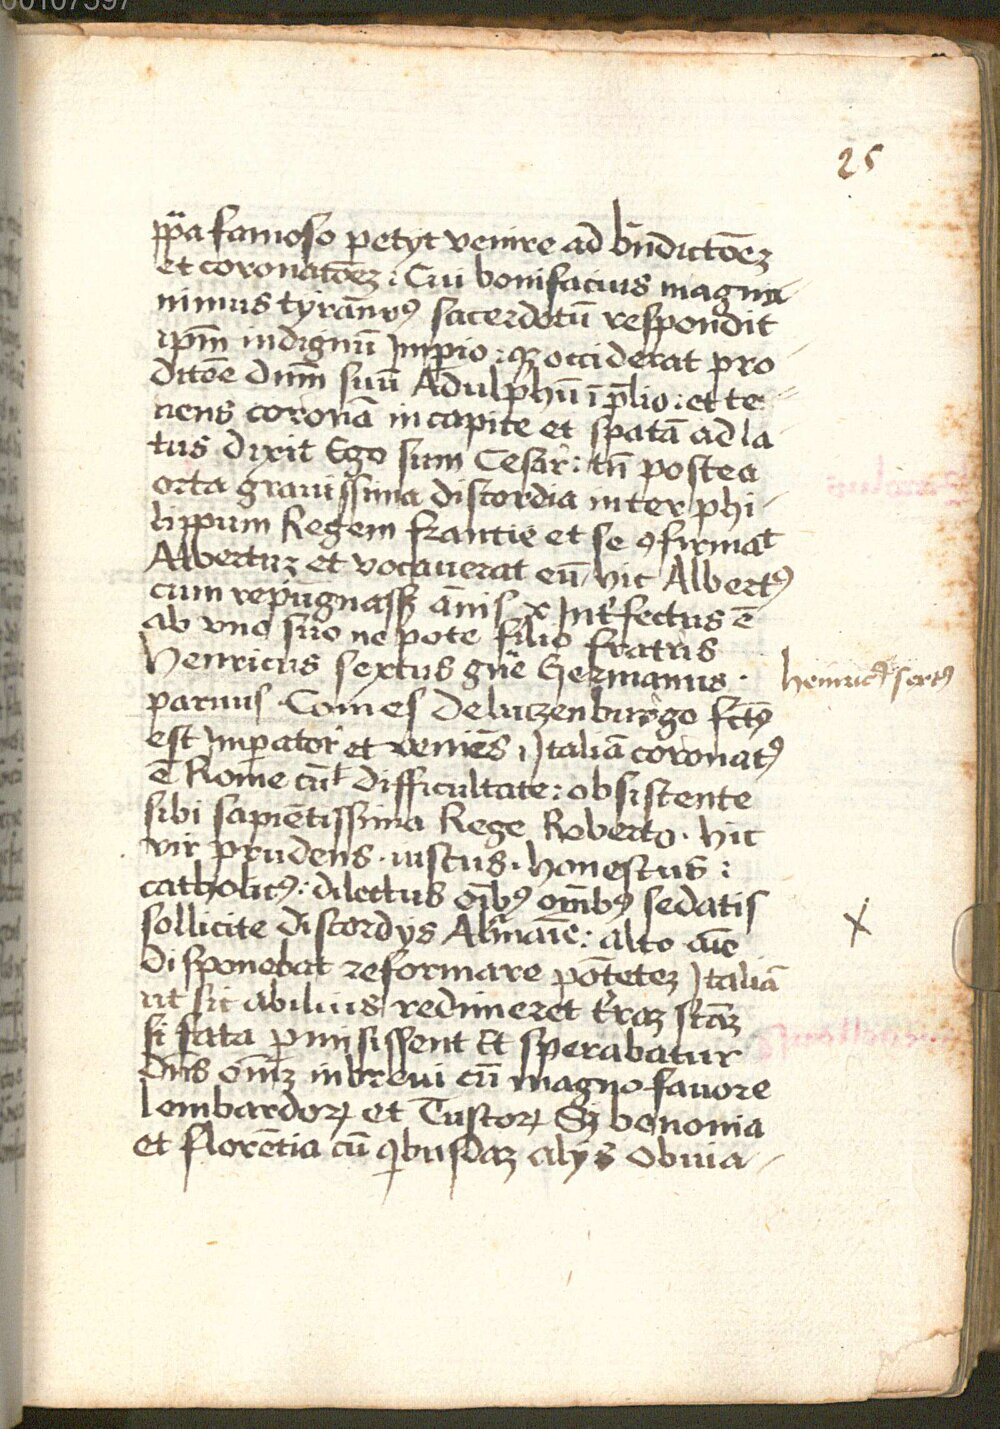 25
ppa famoso petyt venire ad bndictoēz
et coronatoēz : Cui bonifacius magna
nimus tyrānꝰ sacerdotū respondit
ipm̄ indignū Impio : qꝫ occiderat pro
ditoē dnm̄ suū Adulphū ī plio : et te
nens coronā in capite et spatā ad la
tus dixit Ego sum Cesar : tn̄ postea
orta grauissima discordia inter phi
lippum Regem frantie et se ꝯfirmat
Albertuz et vocauerat eū hic Albertꝰ
cum repūgnass annis x Int'fectus ē
ab vno suo ne pote filio fratris
Henricus sextus gn̄e Germanus .
paruus . Comes de lutzenburgo fctꝰ
est Imperator et veniēs ī Italiā coronatꝰ
ē Rome cū difficultate : obsistente
sibi sapiētissima Rege Roberto . hic
vir prudens . iustus . honestus :
catholicꝰ : dilectus oībꝰ omībꝰ sedatis
sollicite discordys Almaīe : alto aīe
disponebat reformare potētez Italiā
ut sic abilius redimeret t'raz sctāz
si fata pmisissent Et sperabatur
dn̄s oīmz in breui cū magno fauore
lombardoꝝ et Tuscoꝝ Sꝫ bononia
et florētia cū qbusdaz alys obuia
heinricꝰ sextꝰ
x